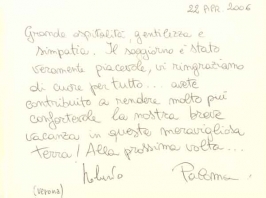 22 APR 2006
Grande ospitalità, gentilezza e
simpatia. Il soggiorno è stato
veramente piacevole, vi ringraziamo
di cuore per tutto... avete
contribuito a rendere molto più
confortevole la nostra breve
vacanza in questa meravigliosa
terra! Alla prossima volta...
Paloma
(VERONA)